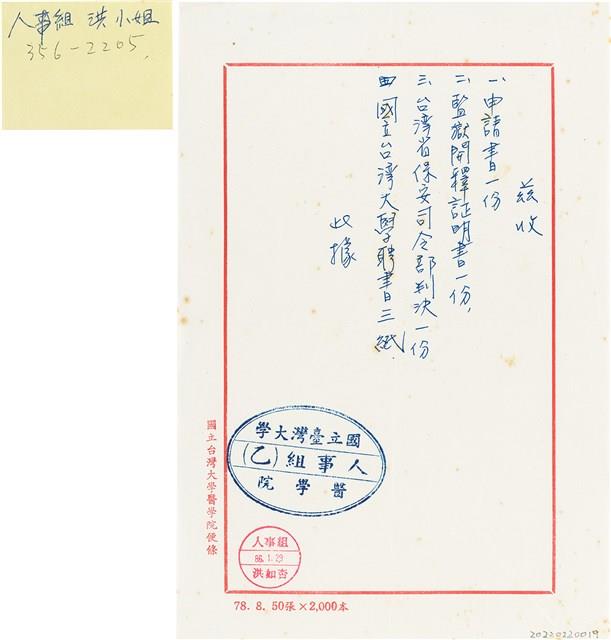 人事組 洪小姐
356-2205.
茲收
一、申請書一份
二、監獄開釋証明書一份,
三、台湾省保安司令部判決一份
四國立台湾大學聘書三紙
此據
國立臺灣大學
人事組(乙)
醫學院
人事組
86.1.29
洪如杏
國立台灣大學醫學院便條
78.8.50張×2,000本
20220220019